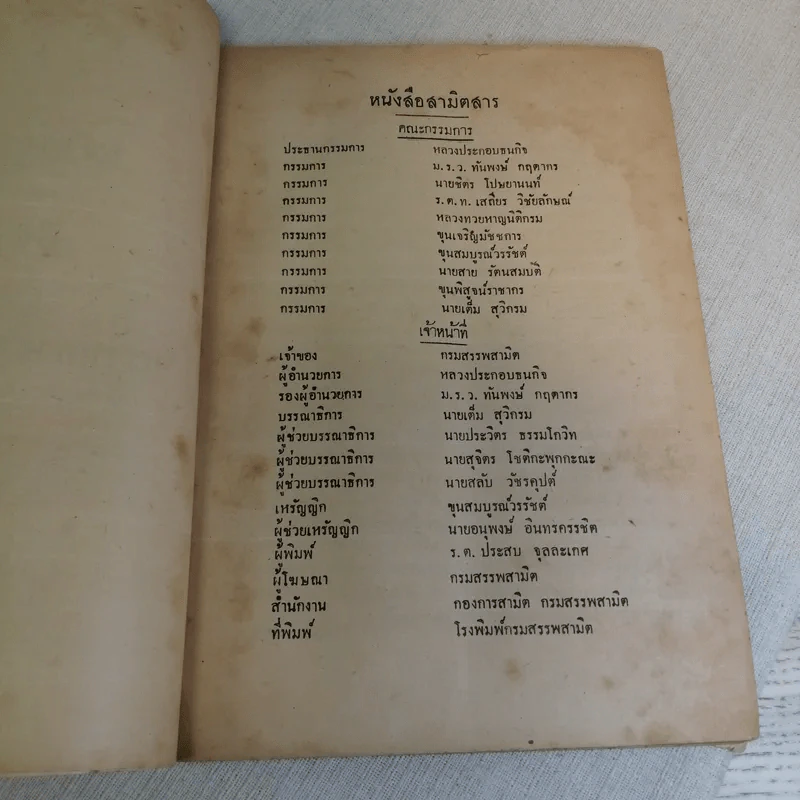 หนังสือสามิตสาร
คณะกรรมการ
ประธานกรรมการ หลวงประกอบธนกิจ
กรรมการ ม.ร.ว. ทันพงษ์ กฤดากร
กรรมการ นายชิตร โปษยานนท์
กรรมการ ร.ต.ท. เสถียร วิชัยลักษณ์
กรรมการ หลวงทวยหาญนิติกรม
กรรมการ ขุนเจริญมัชชการ
กรรมการ ขุนสมบูรณ์วรรัชต์
กรรมการ นายสาย รัตนสมบัติ
กรรมการ ขุนพิสูจน์ราชากร
กรรมการ นายเต็ม สุวิกรม
เจ้าหน้าที่
เจ้าของ กรมสรรพสามิต
ผู้อำนวยการ หลวงประกอบธนกิจ
รองผู้อำนวยการ ม.ร.ว. ทันพงษ์ กฤดากร
บรรณาธิการ นายเต็ม สุวิกรม
ผู้ช่วยบรรณาธิการ นายประวิตร ธรรมโกวิท
ผู้ช่วยบรรณาธิการ นายสุจิตร โชติกะพุกกะณะ
ผู้ช่วยบรรณาธิการ นายสลับ วัชรคุปต์
เหรัญญิก ขุนสมบูรณ์วรรัชต์
ผู้ช่วยเหรัญญิก นายอนุพงษ์ อินทรครรชิต
ผู้พิมพ์ ร.ต. ประสบ จุลละเกศ
ผู้โฆษณา กรมสรรพสามิต
สำนักงาน กองการสามิต กรมสรรพสามิต
ที่พิมพ์ โรงพิมพ์กรมสรรพสามิต